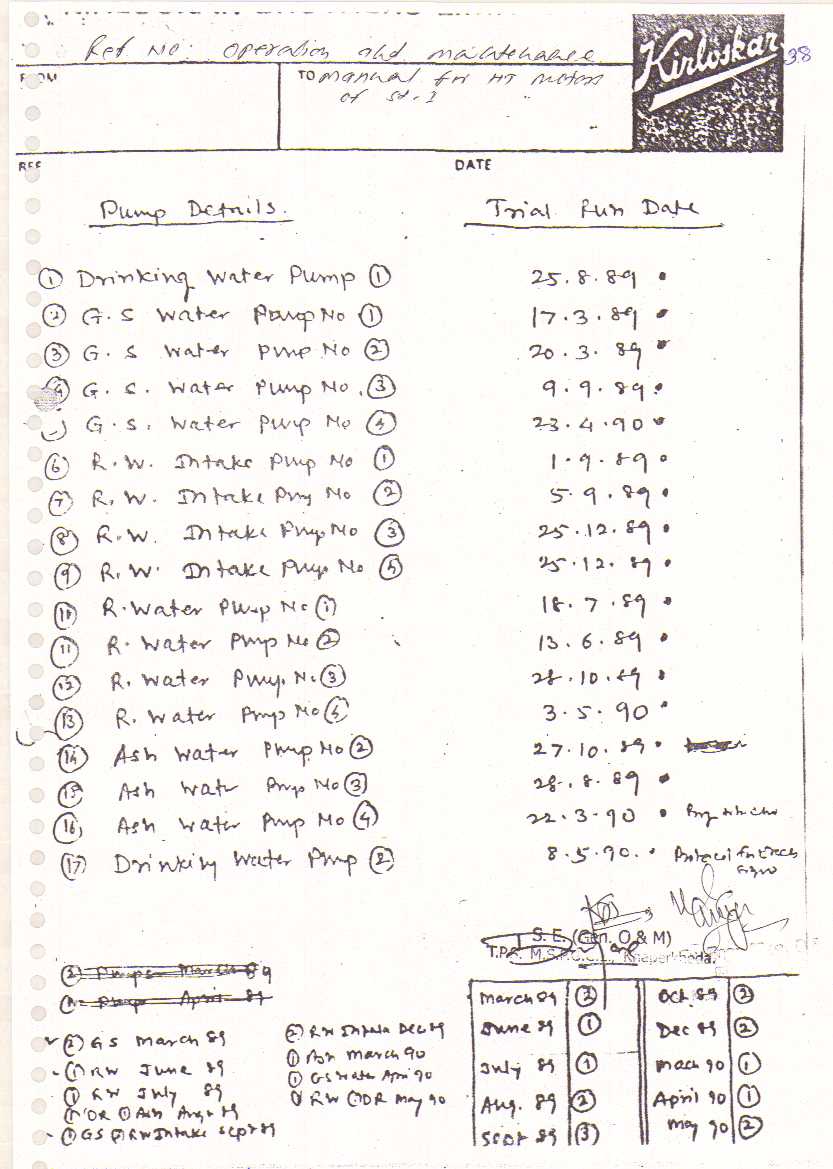 Ref No: operation and maintenance
Kirloskar
38
FROM
TO manual for HT motors
of St-I
REF
DATE
Pump Details. Trial Run Date
① Drinking Water Pump ① 25.8.89
② G.S Water Pump No ① 17.3.89
③ G.S Water Pump No ② 20.3.89
④ G.S. Water Pump No. ③ 9.9.89
G.S. Water Pump No ④ 23.4.90
⑥ R.W. Intake Pump No ① 1.9.89
⑦ R.W. Intake Pmp No ② 5.9.89
⑧ R.W. Intake Pump No ③ 25.12.89
⑨ R.W. Intake Pump No ④ 25.12.89
⑩ R.Water Pump No ① 18.7.89
⑪ R.Water Pmp No ② 13.6.89
⑫ R.Water Pump.No ③ 28.10.89
⑬ R.Water Pmp No ④ 3.5.90
⑭ Ash Water Pump No ② 27.10.89
⑮ Ash Water Pmp No ③ 28.8.89
⑯ Ash Water Pump No ④ 22.3.90
⑰ Drinking Water Pmp ② 8.5.90. Protocol
S. E. (Gen. O & M)
T.P.S. M.S.E.B., Khaperkheda.
② Pumps March 89
Pump April 89
② GS March 89
① RW June 89
① RW July 89
① DR ① Ash Aug 89
① GS ② RW Intake Sept 89
② RW Intake Dec 89
① Ash March 90
① GS Water April 90
① RW ① DR May 90
March 89 ② Oct 89 ②
June 89 ① Dec 89 ②
July 89 ① Mach 90 ①
Aug. 89 ② April 90 ①
Sept 89 ③ May 90 ②